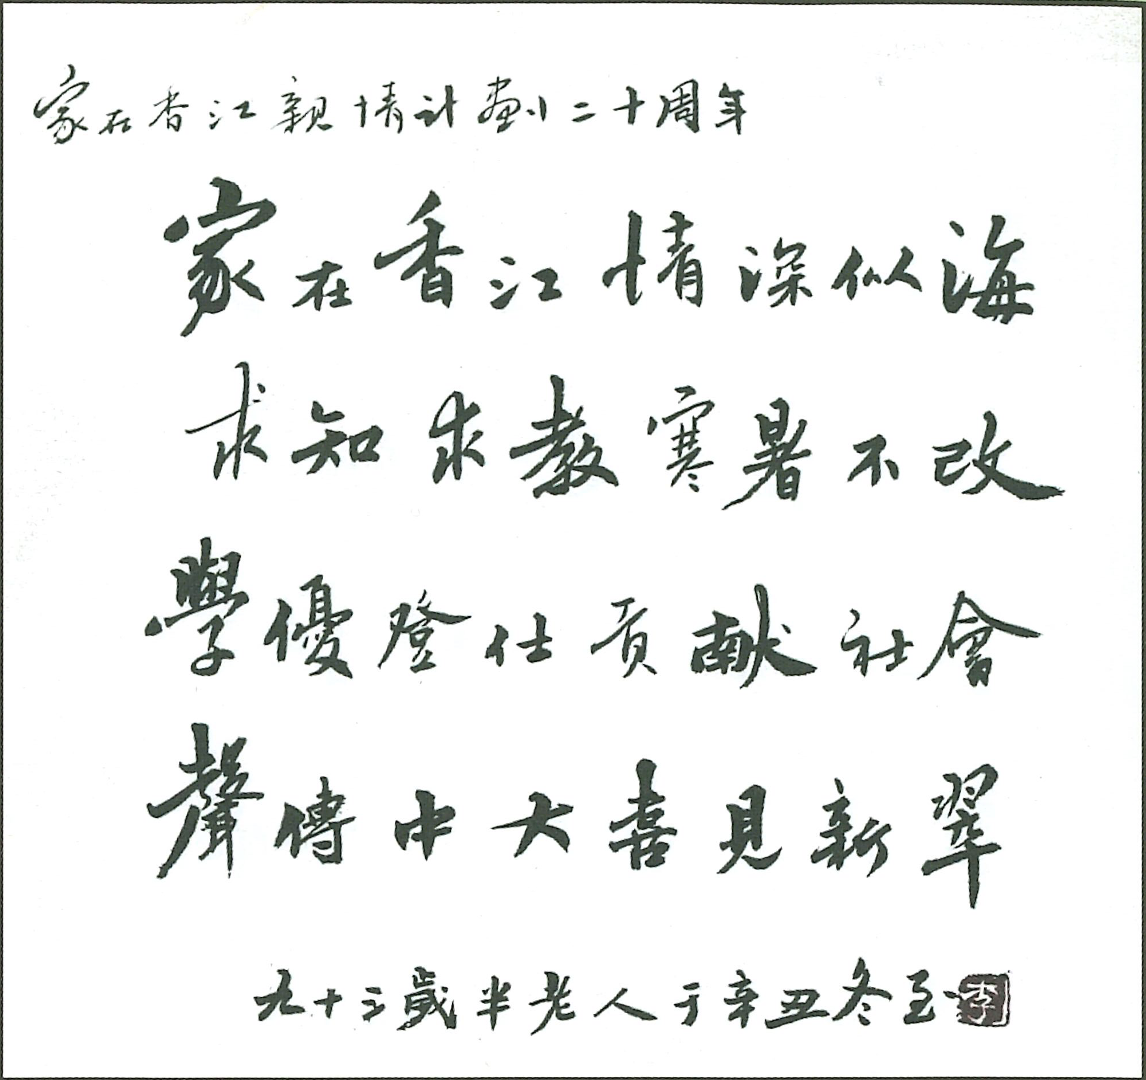 家在香江親情計劃二十周年
家在香江情深似海
求知求教寒暑不改
學優登仕貢献社會
聲傳中大喜見新翠
九十三歲半老人于辛丑冬至 李